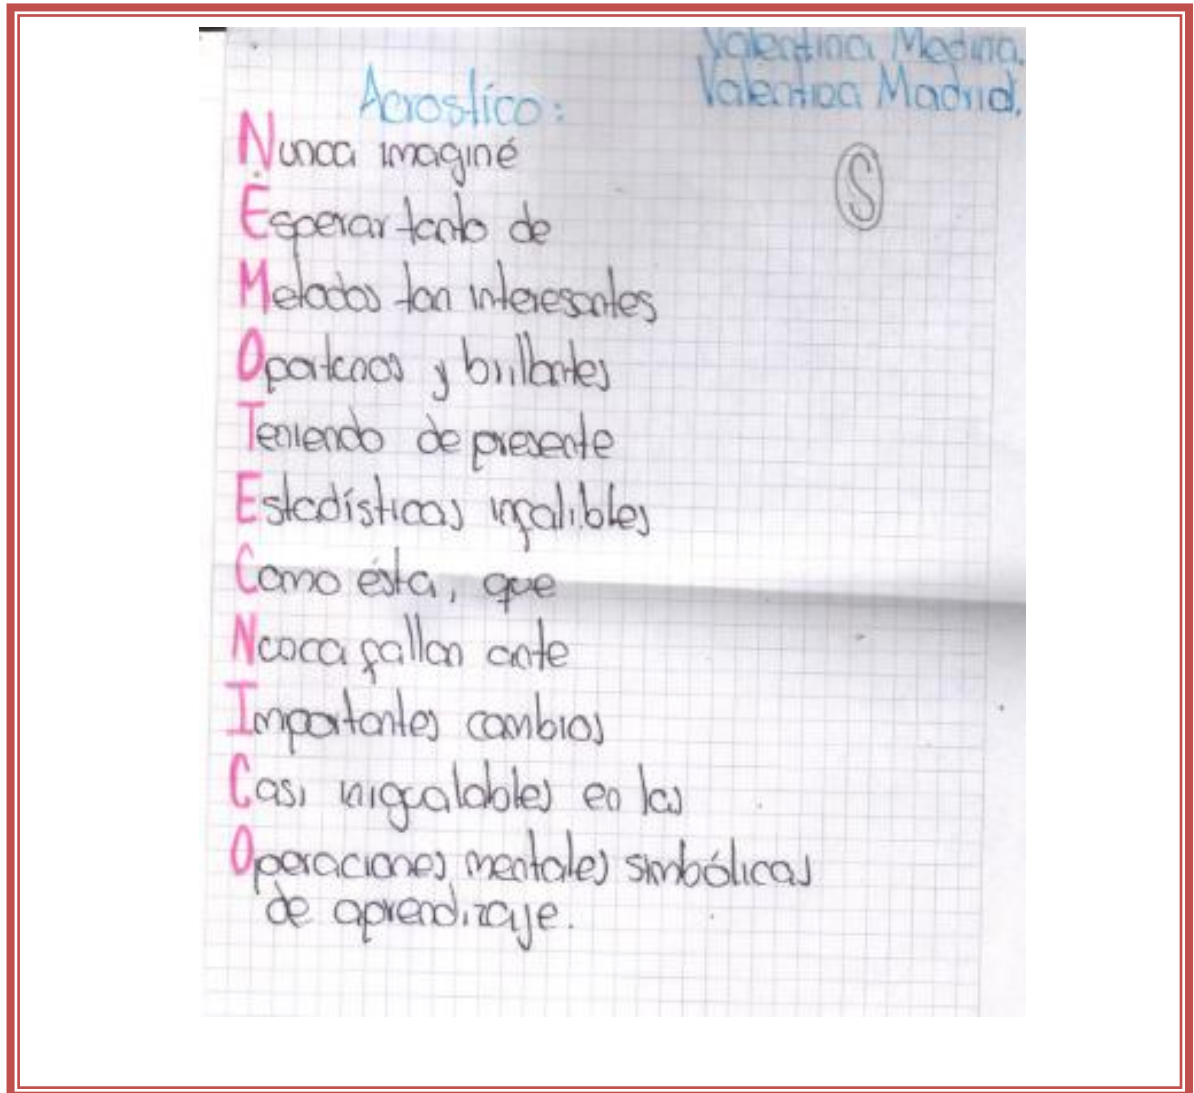 Valentina Medina.
Valentina Madrid.
Acrostíco:
Nunca imaginé
S
Esperar tanto de
Metodos tan interesantes
Oportunos y brillantes
Teniendo de presente
Estadísticas infalibles
Como ésta, que
Nunca fallan ante
Importantes cambios
Casi inigualables en las
Operaciones mentales simbólicas
de aprendizaje.